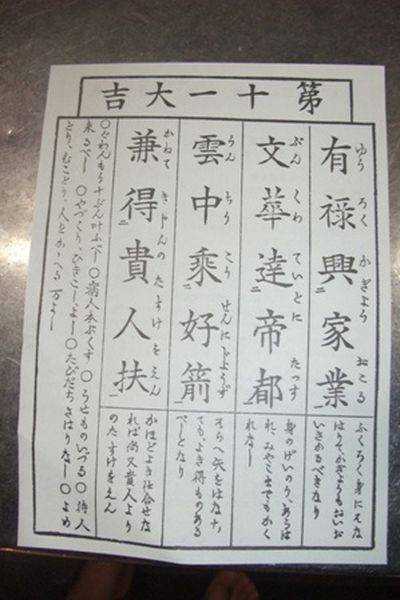 第十一大吉
ゆう ろく かぎよう おこる
有禄興二家業一
ふくろく身にそな
はりて、かぎようもおいお
いさかるべきなり
ぶん くわ ていとに たつす
文華達二帝都一
身のげいのう、あらは
れ、みやこまでもかく
れなし
うん ちう こう せんにじようず
雲中乘二好箭一
そらへ矢をはなち
ても、よき得ものある
べしとなり
かねて きじんのたすけをえん
兼得二貴人扶一
かほどよき仕合せな
れば尚又貴人より
のたすけをえん
〇ぐわんもう十ぶん叶ふべし〇病人本ぶくす〇うせものいづる〇待人
来るべし〇やづくり、ひきこしよし〇たびだちさはりなし〇よめ
とり、むことり、人をかゝへる万よし